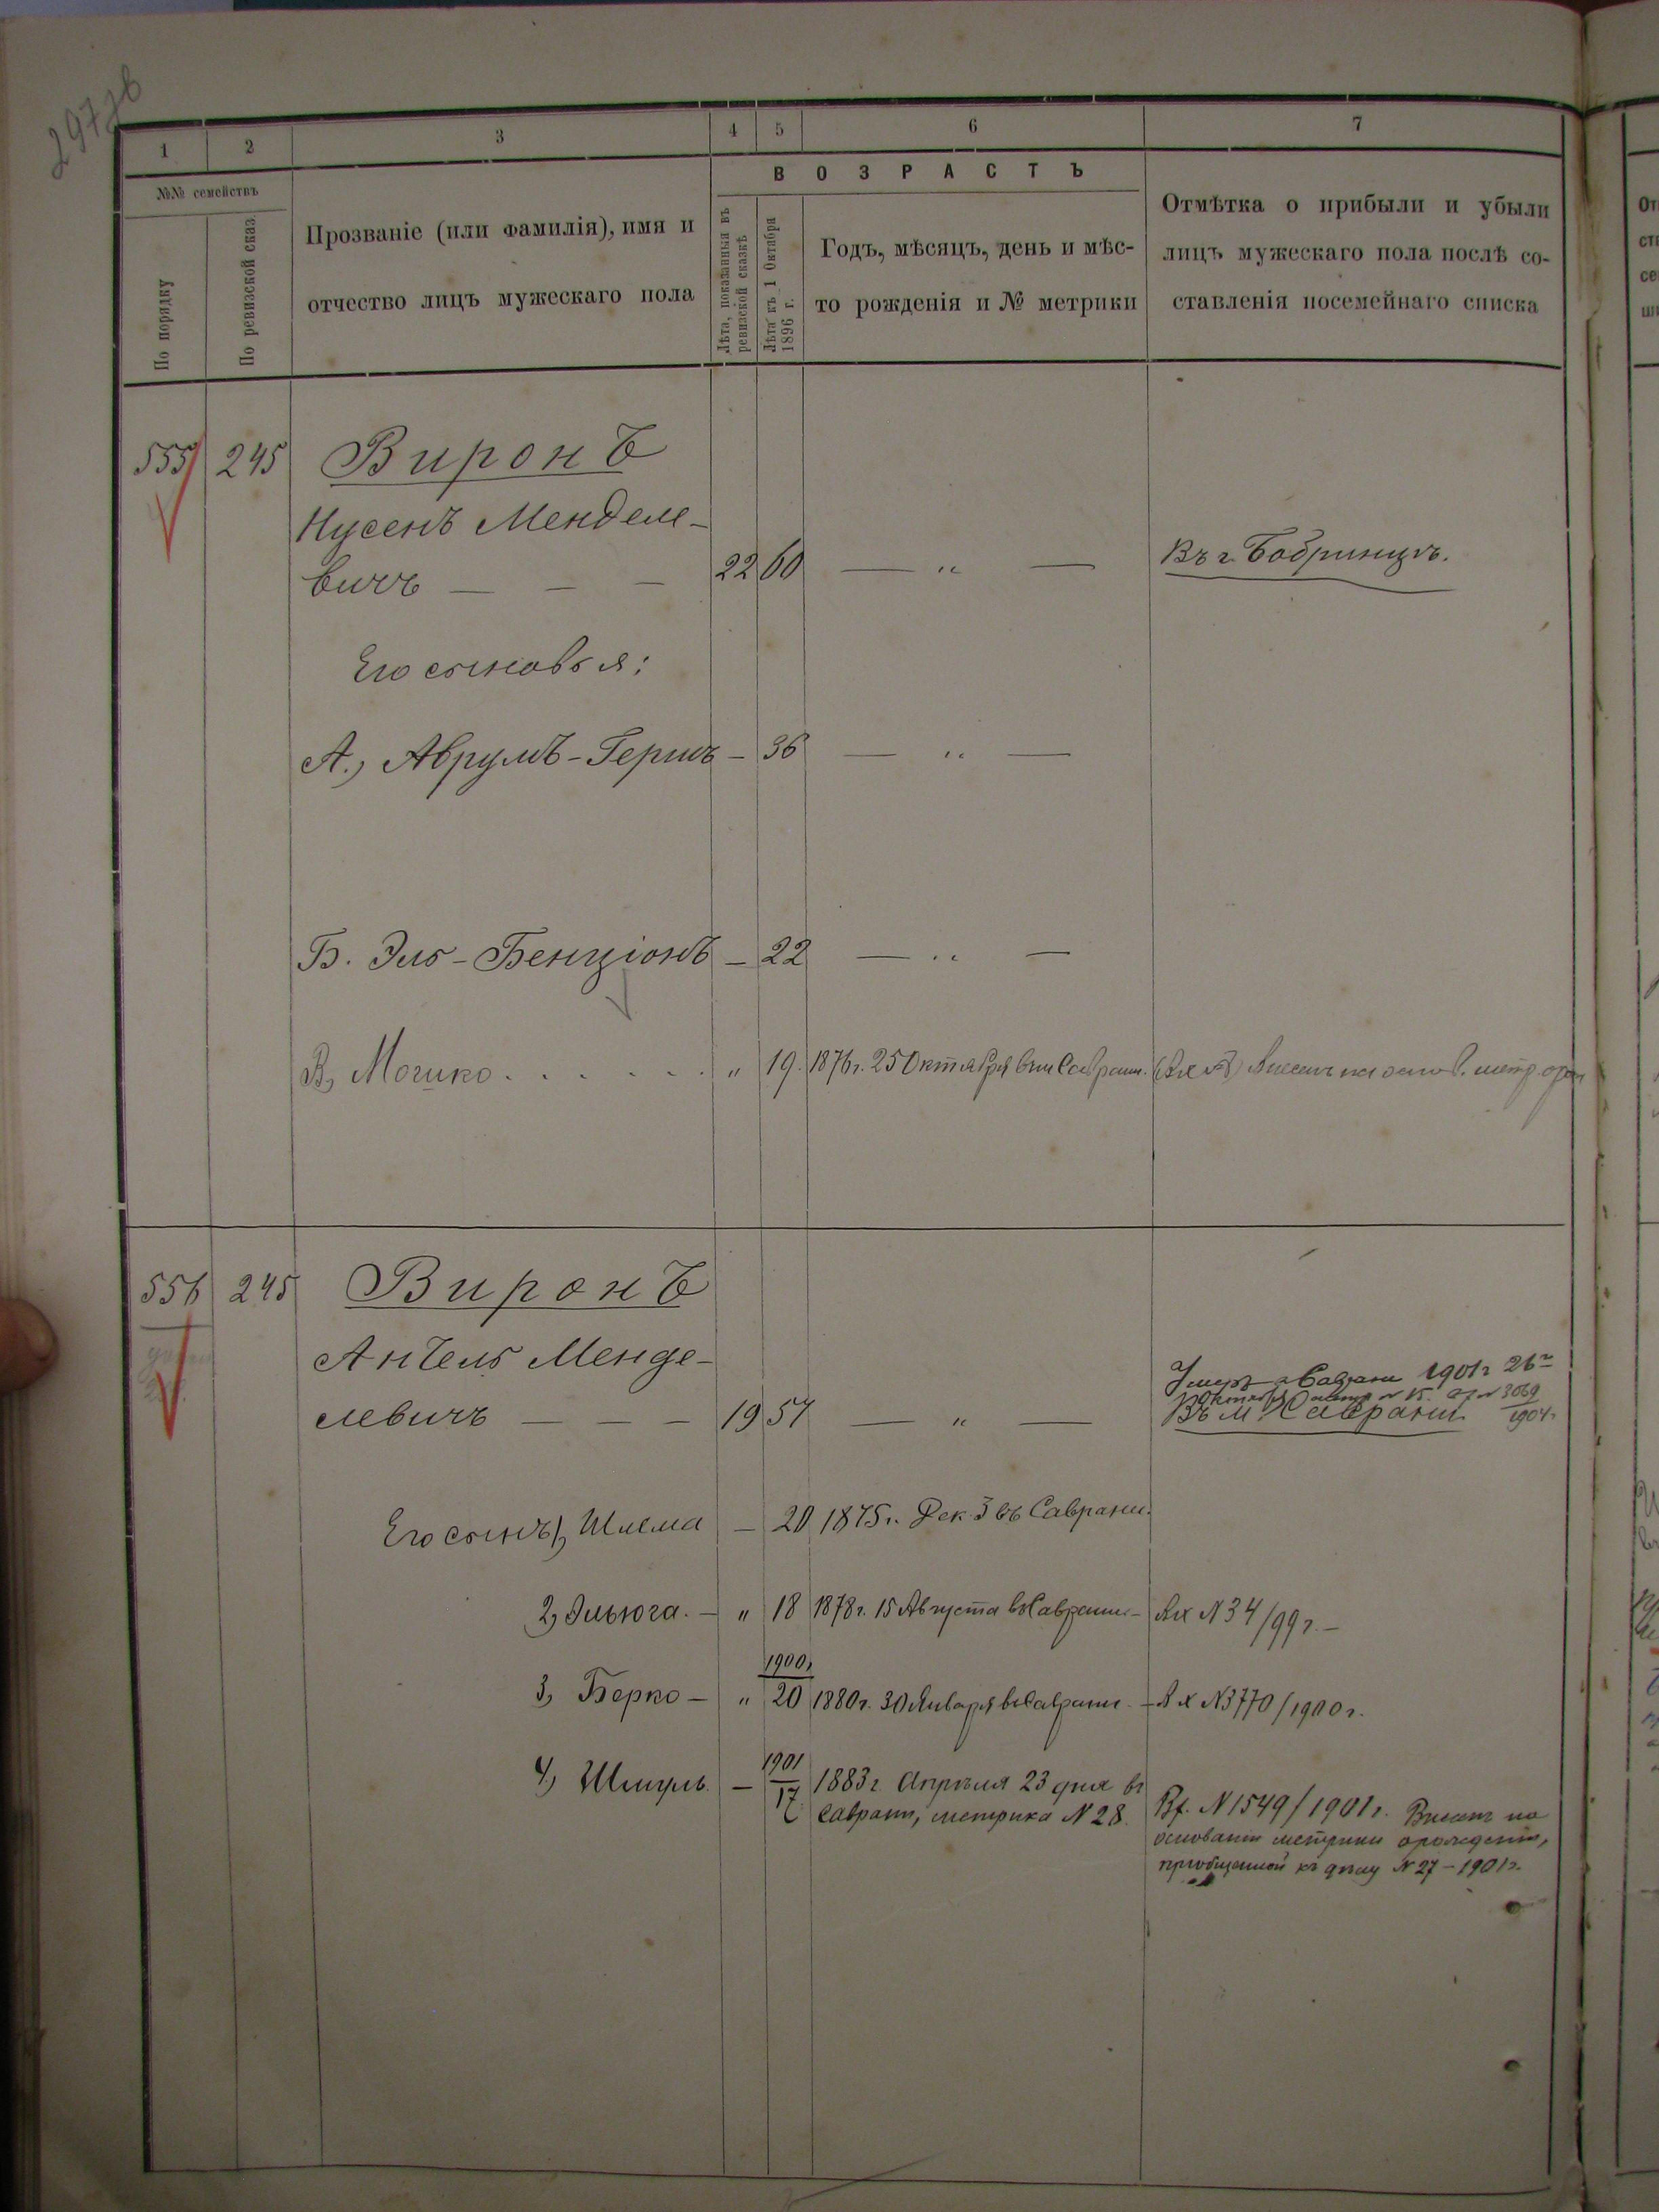 297
1 2 3 4 5 6 7
№№ семействъ
По порядку
По ревизской сказ
Прозваніе (или фамилія), имя и
отчество лицъ мужескаго пола
ВОЗРАСТЪ
Лѣта, показанныя въ
ревизской сказкѣ
Лѣта къ 1 Октября
1896 г.
Годъ, мѣсяцъ, день и мѣс-
то рожденія и № метрики
Отмѣтка о прибыли и убыли
лицъ мужескаго пола послѣ со-
ставленія посемейнаго списка
555 245 Виронъ
Нусенъ Менделе-
вичъ — — — 22 60 — „ — Въ г. Бобринцѣ.
Его сыновья:
А.) Аврумъ-Гершъ — 36 — „ —
Б. Эль-Бенціонъ — 22 — „ —
В) Мошко . . . . . . „ 19. 1876 г. 25 Октября въ м Саврани.
556 245 Виронъ
Анчель Менде-
левичъ — — — 19 57 — „ —
Умеръ въ Саврани 1901 г 26
Октября № 15. № 3069
1904 г
Въ м. Саврани
Его сынъ 1) Шлема — 20 1875 г. Дек 3 въ Саврани.
2) Эльюга. — „ 18 1878 г. 15 Августа въ Саврани. — Вх № 34/99 г. —
1900 г
3) Берко — „ 20 1880 г. 30 Января въ Саврани. — Вх № 3770/1900 г.
1901
4) Шмуль. — 17 1883 г Апрѣля 23 дня въ
Саврани, метрика № 28.
Вх. № 1549/1901 г. Внесенъ на
основаніи метрики о рожденіи,
пріобщенной къ дѣлу № 27 – 1901 г.